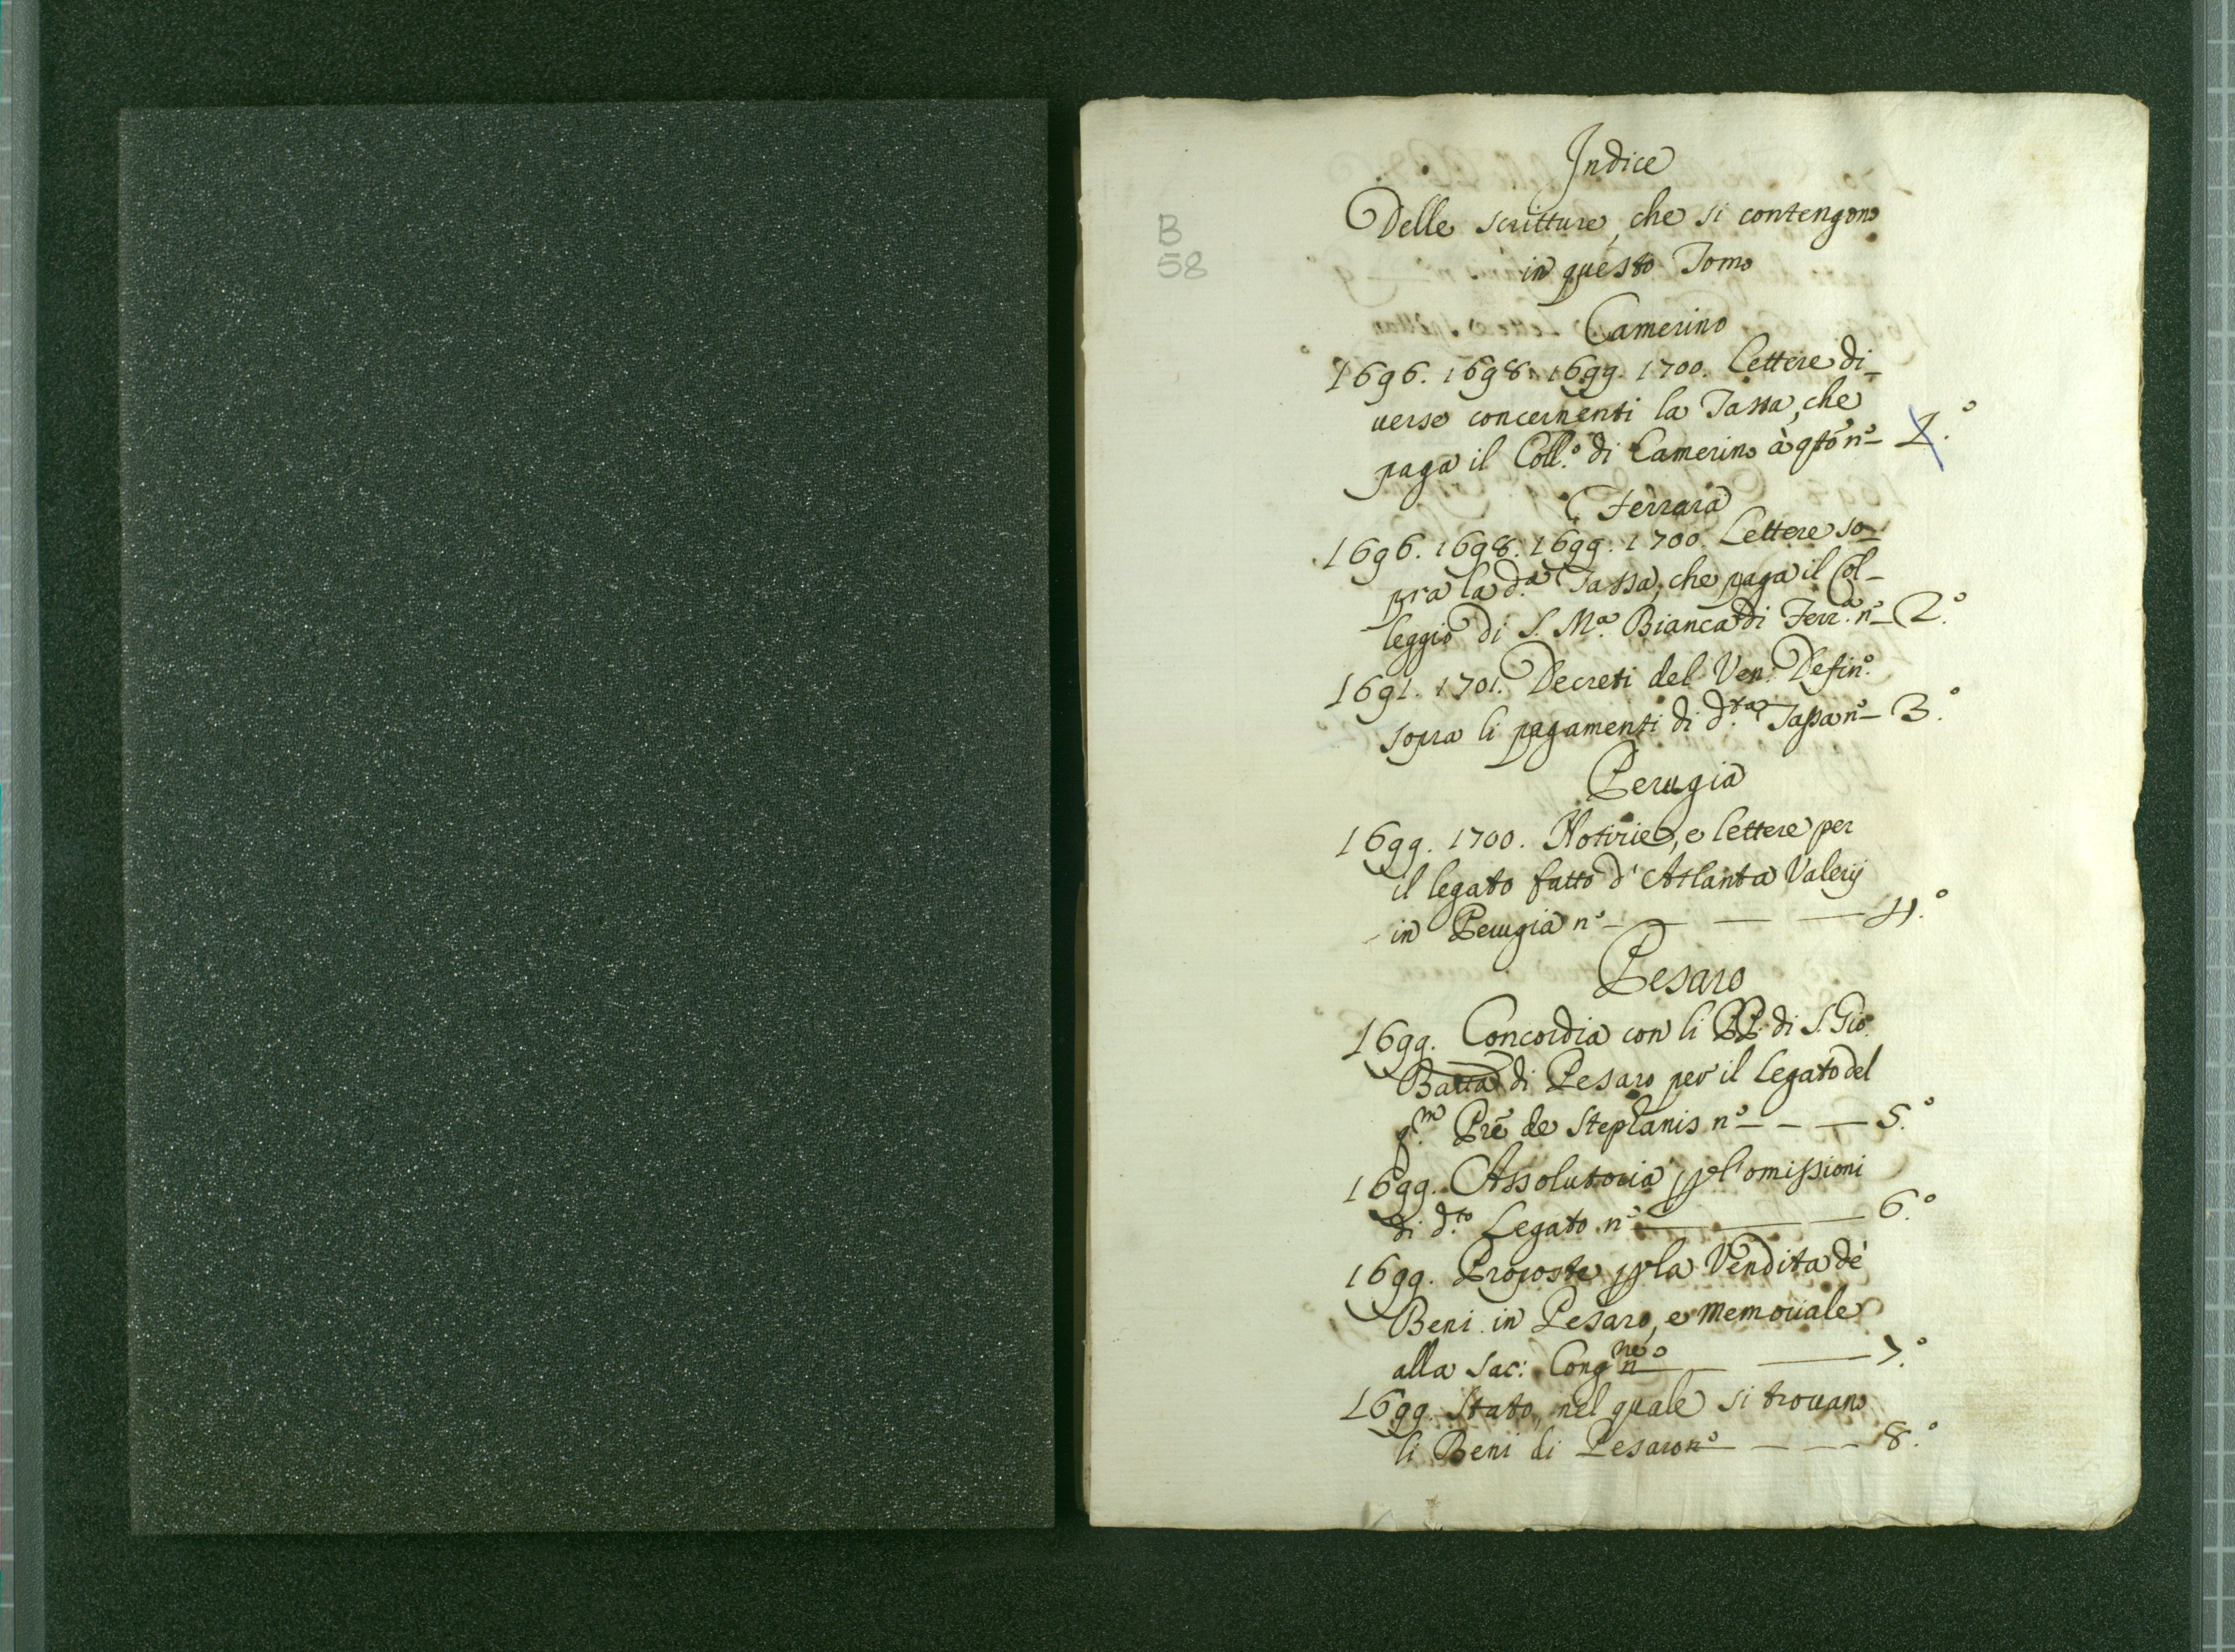 B
58
Indice
Delle scritture, che si contengono
in questo Tomo
Camerino
1696. 1698. 1699. 1700. Lettere di_
uerse concernenti la Tassa, che
paga il Coll.º di Camerino à qsto nº_ 1.º
Ferrara
1696. 1698. 1699. 1700. Lettere so_
pra la d.ª Tassa, che paga il Col_
leggio di S. Mª. Bianca di Ferr.ª nº_ 2.º
1691. 1701. Decreti del Ven. Defin.º
sopra li pagamenti di d.ta Tassa nº_ 3.º
Perugia
1699. 1700. Notizie, e lettere per
il legato fatto d'Atlanta Valerij
in Perugia nº_ _ _ _ 4.º
Pesaro
1699. Concordia con li PP. di S. Gio.
Batta di Pesaro per il Legato del
q.m Prē de Stephanis nº_ _ _ 5.º
1699. Assolutoria p l'omissioni
di d.to Legato nº_ _ _ 6.º
1699. Proposte p la Vendita de'
Beni in Pesaro, e memoriale
alla Sac: Congne nº_ _ _ 7.º
1699. Stato, nel quale si trouano
li Beni di Pesaro nº_ _ _ 8.º